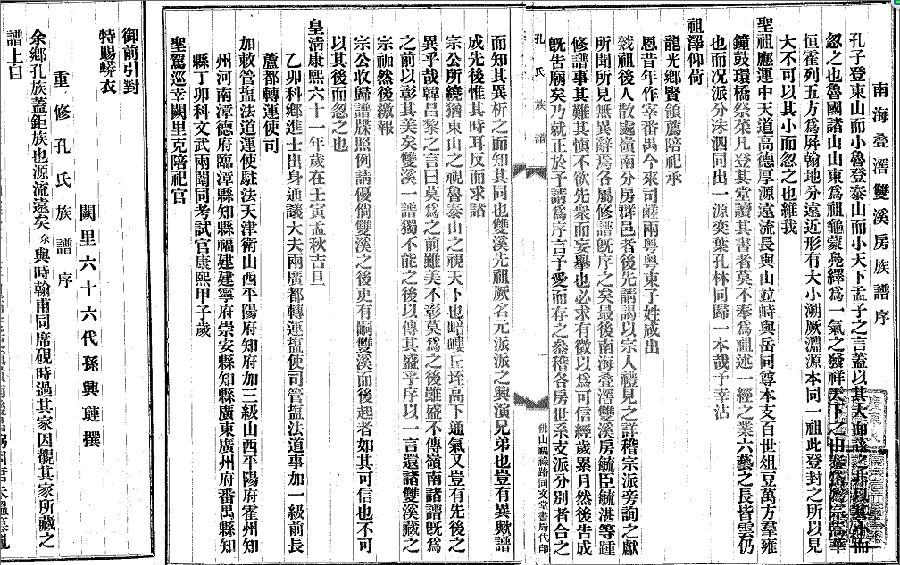 南海叠滘雙溪房族譜序
孔子登東山而小魯登泰山而小天下孟子之言蓋以其大而
忽之也魯國諸山山東為祖龜蒙鳧繹為一氣之發祥天下之
恒霍列五方為屏翰地分遠近形有大小溯厥淵源本同一祖此登封之所以見
大不可以其小而忽之也維我
聖祖應運中天道高德厚源遠流長與山並峙與岳同尊本支百世俎豆萬方羣雍
鐘鼓環橋祭菜凡登其堂讀其書者莫不奉為祖述一經之業六藝之長皆雲仍
也而況派分洙泗同出一源奕葉孔林同歸一本哉予幸沾
祖澤仰荷
龍光鄉賢領薦陪祀承
恩昔年作宰番禺今來司鹺兩粤粤東子姓咸出
祖後人散處嶺南分房羣邑者後先請謁以宗人禮見之詳稽宗派旁詢之獻
所聞所見無異辭焉各屬修譜旣序之矣最後南海叠滘雙溪房毓臣毓湛等踵
修譜事其難其慎不欲先衆而妄舉也必求有徵以為可信經歲累月然後告成
旣告廟矣乃就正於予請為序言予愛而存之叅稽各房世系支派分別者合之
孔氏族譜
佛山福祿路同文堂書局代印
而知其異析之而知其同也雙溪先祖厥名元派派之與演兄弟也豈有異歟譜
成先後惟其時耳反而求諸
宗公所鑴猶東山之視魯泰山之視天下也嵦嶁丘垤高下通氣又豈有先後之
異乎哉韓昌黎之言曰莫為之前雖美不彰莫為之後雖盛不傳嶺南諸譜旣為
之前以彰其美矣雙溪一譜獨不能之後以傳其盛乎序以一言還諸雙溪藏之
宗祏然後繳報
宗公收歸譜牒照例請優倘雙溪之後更有嗣雙溪而後起者如其可信也不可
以其後而忽之也
皇清康熙六十一年歲在壬寅孟秋吉旦
乙卯科鄉進士出身通議大夫兩廣都轉運塩使司管塩法道事加一級前長
蘆都轉運使司
加敕管塩法道運使駐法天津衛山西平陽府知府加三級山西平陽府霍州知
州河南漳德府臨漳縣知縣福建建寧府崇安縣知縣廣東廣州府番禺縣知
縣丁卯科文武兩闈同考試官康熙甲子歲
聖駕巡幸闕里克陪祀官
御前引對
特賜蟒衣
闕里六十六代孫興璉撰
重修孔氏族譜序
余鄉孔族蓋鉅族也源流遠矣余與時翰甫同席硯時過其家因觀其家所藏之
譜上自